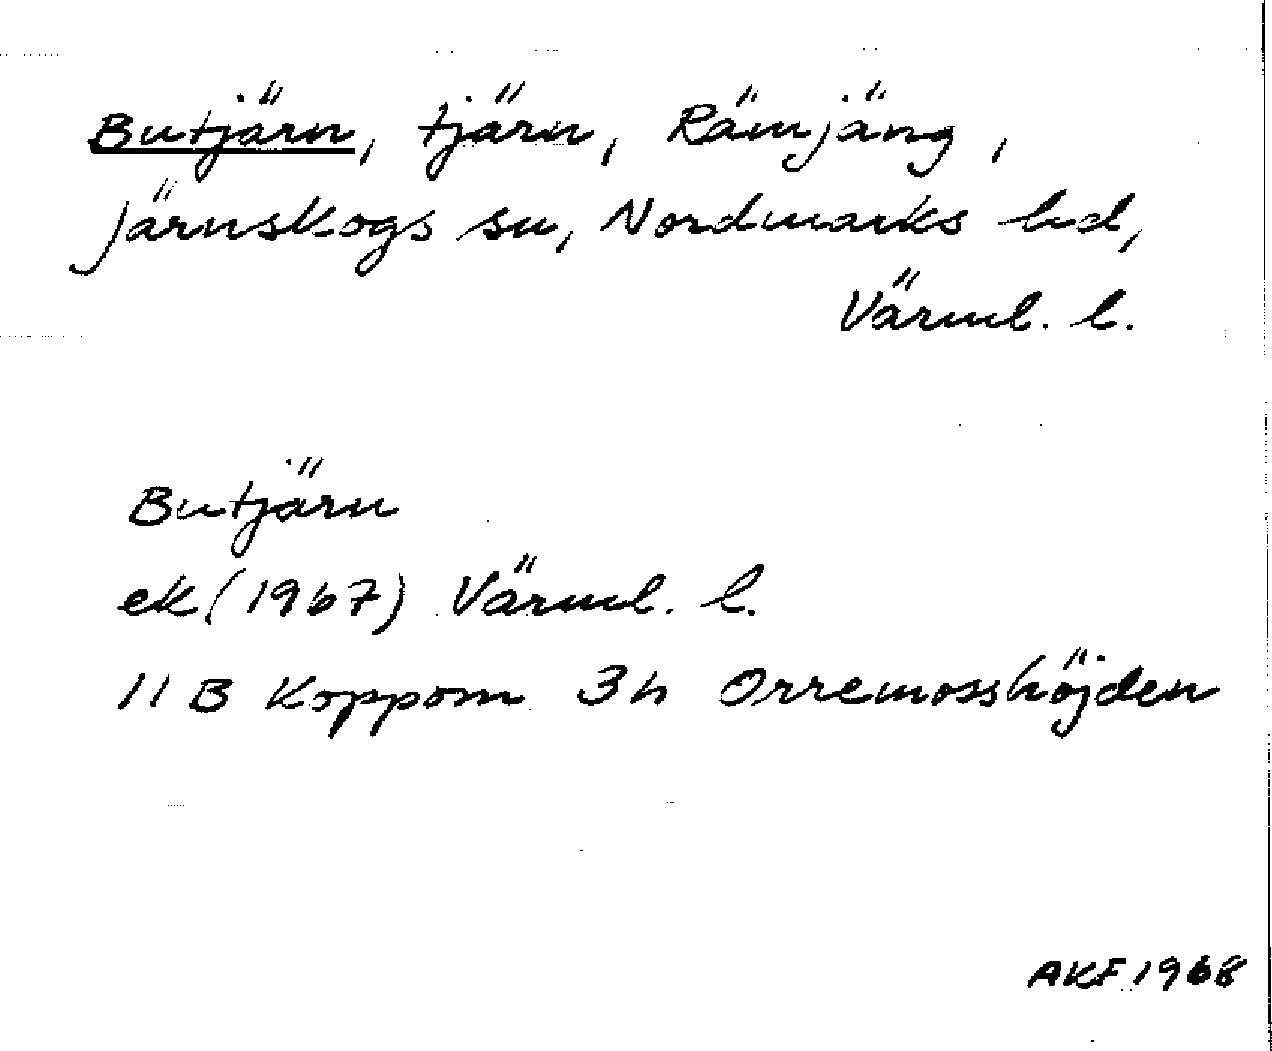 Butjärn, tjärn, Rämjäng,
Järnskogs sn, Nordmarks hd,
Värml. l.
Butjärn
ek (1967) Värml. l.
11 B Koppom 3h Orremosshöjden
AKF 1968